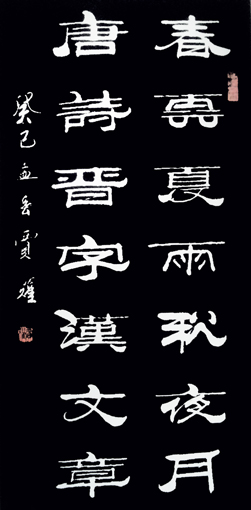 春雲夏雨秋夜月
唐詩晋字漢文章
癸巳孟